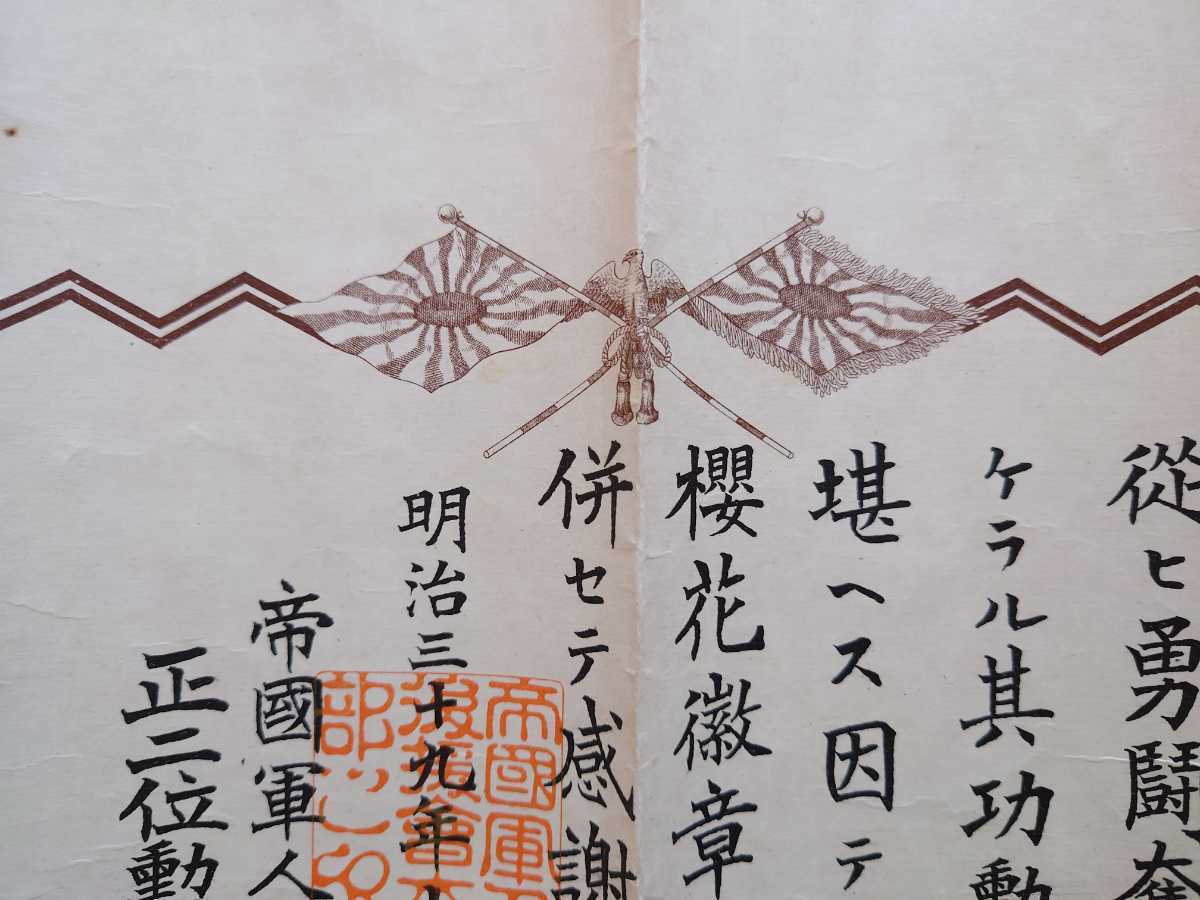 從ヒ勇鬪奮
ケラル其功勳
堪ヘス因テ
櫻花徽章
併セテ感謝
明治三十九年
帝國軍人
正二位勳
帝國軍
後援會
部之印